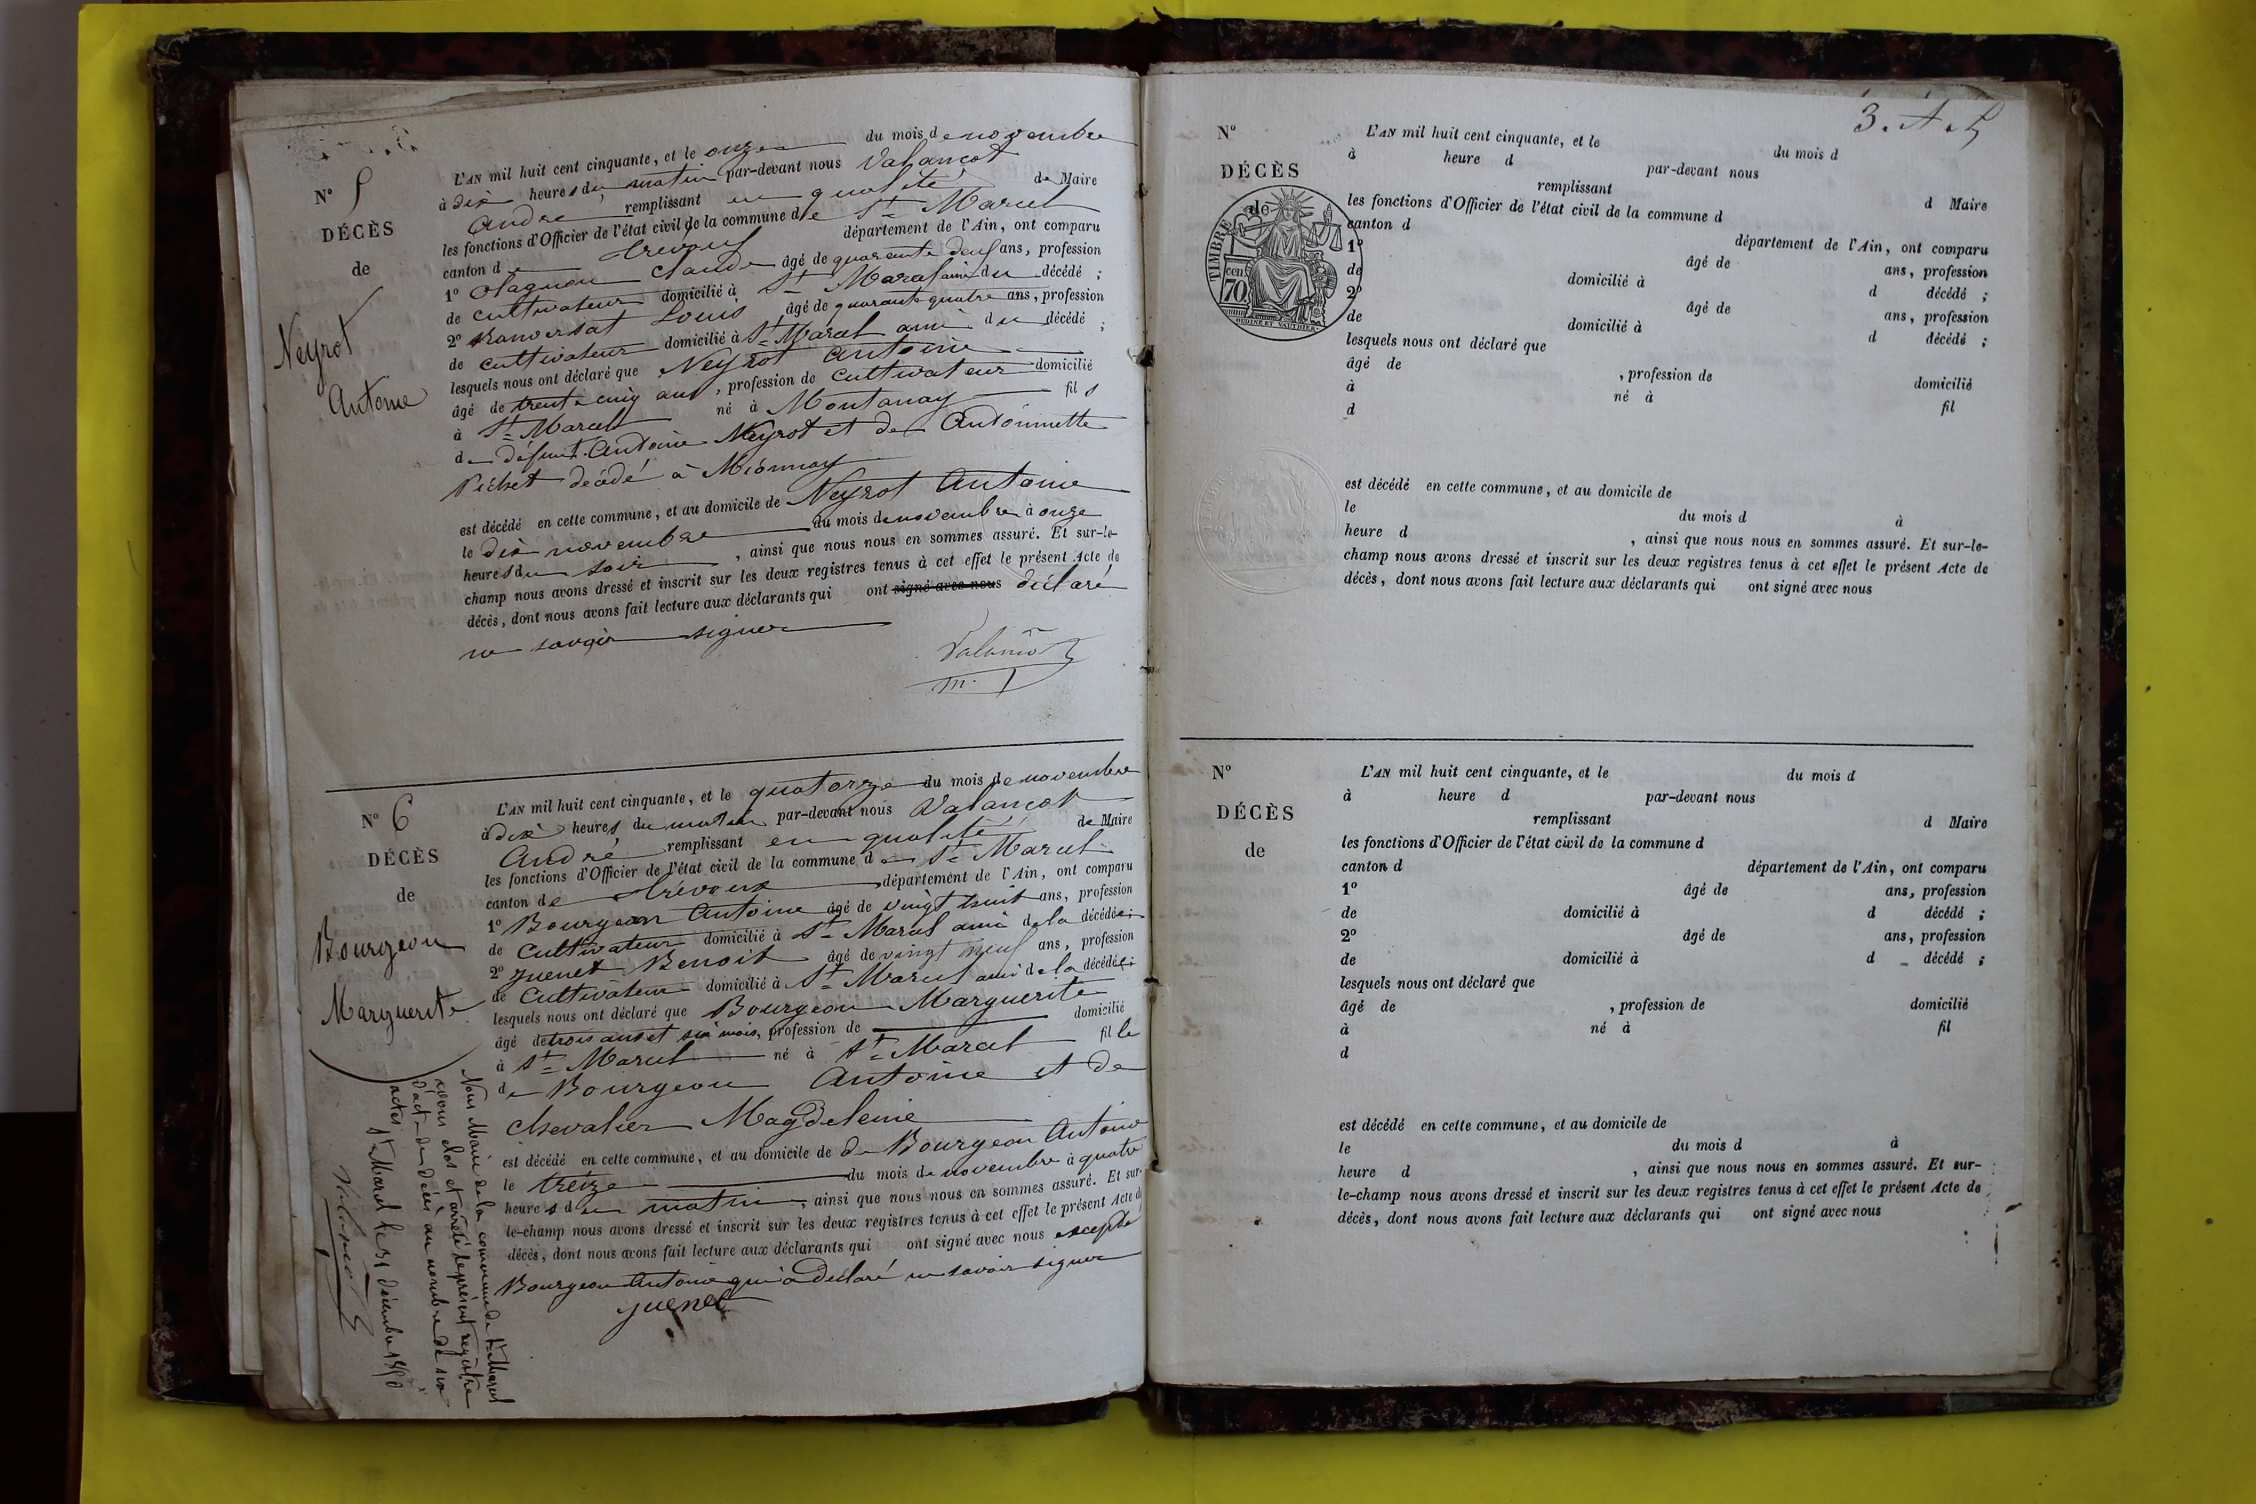 N° 5
DÉCÈS
de
Neyrot
Antoine
L'AN mil huit cent cinquante, et le onze du mois de novembre
à dix heures du matin par-devant nous Valançot
André remplissant en qualité de Maire
les fonctions d'Officier de l'état civil de la commune de St Marcel
canton de Trevoux département de l'Ain, ont comparu
1° Claude âgé de quarente deux ans, profession
de cultivateur domicilié à St Marcel ami du décédé ;
2° Louis âgé de quarante quatre ans, profession
de cultivateur domicilié à St Marcel ami du décédé ;
lesquels nous ont déclaré que Neyrot Antoine
âgé de trente cinq ans, profession de cultivateur domicilié
à St Marcel né à Montanay fils
de défunt Antoine Neyrot et de Antoinnette
Pichet décédé à Mionnay
est décédé en cette commune, et au domicile de Neyrot Antoine
le dix novembre du mois de novembre à onze
heures du soir, ainsi que nous nous en sommes assuré. Et sur-le-
champ nous avons dressé et inscrit sur les deux registres tenus à cet effet le présent Acte de
décès, dont nous avons fait lecture aux déclarants qui ont signé avec nous déclaré
ne savoir signer
m.
N° 6
DÉCÈS
de
Bourgeon
Marguerite
L'AN mil huit cent cinquante, et le quatorze du mois de novembre
à dix heures du matin par-devant nous Valançot
André remplissant en qualité de Maire
les fonctions d'Officier de l'état civil de la commune de St Marcel
canton de Trévoux département de l'Ain, ont comparu
1° Bourgeon Antoine âgé de vingt huit ans, profession
de cultivateur domicilié à St Marcel ami de la décédée ;
2° Juenet Benoit âgé de vingt neuf ans, profession
de cultivateur domicilié à St Marcel ami de la décédée ;
lesquels nous ont déclaré que Bourgeon Marguerite
âgé de trois ans et six mois, profession de domicilié
à St Marcel né à St Marcel fille
de Bourgeon Antoine et de
Chevalier Magdeleine
est décédé en cette commune, et au domicile de de Bourgeon Antoine
le treize du mois de novembre à quatre
heures du matin, ainsi que nous nous en sommes assuré. Et sur-
le-champ nous avons dressé et inscrit sur les deux registres tenus à cet effet le présent Acte de
décès, dont nous avons fait lecture aux déclarants qui ont signé avec nous excepté
Bourgeon Antoine qui a déclaré ne savoir signer
Juenet
Nous Maire de la commune de St Marcel
avons clos et arrêté le présent registre
d'acte de décès au nombre de six
actes St Marcel le 31 décembre 1850
3.
N°
DÉCÈS
de
TIMBRE
cen 70
L'AN mil huit cent cinquante, et le du mois d
à heure d par-devant nous
remplissant d Maire
les fonctions d'Officier de l'état civil de la commune d
canton d département de l'Ain, ont comparu
1° âgé de ans, profession
de domicilié à d décédé ;
2° âgé de ans, profession
de domicilié à d décédé ;
lesquels nous ont déclaré que
âgé de , profession de domicilié
à né à fil
d
est décédé en cette commune, et au domicile de
le du mois d à
heure d , ainsi que nous nous en sommes assuré. Et sur-le-
champ nous avons dressé et inscrit sur les deux registres tenus à cet effet le présent Acte de
décès, dont nous avons fait lecture aux déclarants qui ont signé avec nous
N°
DÉCÈS
de
L'AN mil huit cent cinquante, et le du mois d
à heure d par-devant nous
remplissant d Maire
les fonctions d'Officier de l'état civil de la commune d
canton d département de l'Ain, ont comparu
1° âgé de ans, profession
de domicilié à d décédé ;
2° âgé de ans, profession
de domicilié à d décédé ;
lesquels nous ont déclaré que
âgé de , profession de domicilié
à né à fil
d
est décédé en cette commune, et au domicile de
le du mois d à
heure d , ainsi que nous nous en sommes assuré. Et sur-
le-champ nous avons dressé et inscrit sur les deux registres tenus à cet effet le présent Acte de
décès, dont nous avons fait lecture aux déclarants qui ont signé avec nous